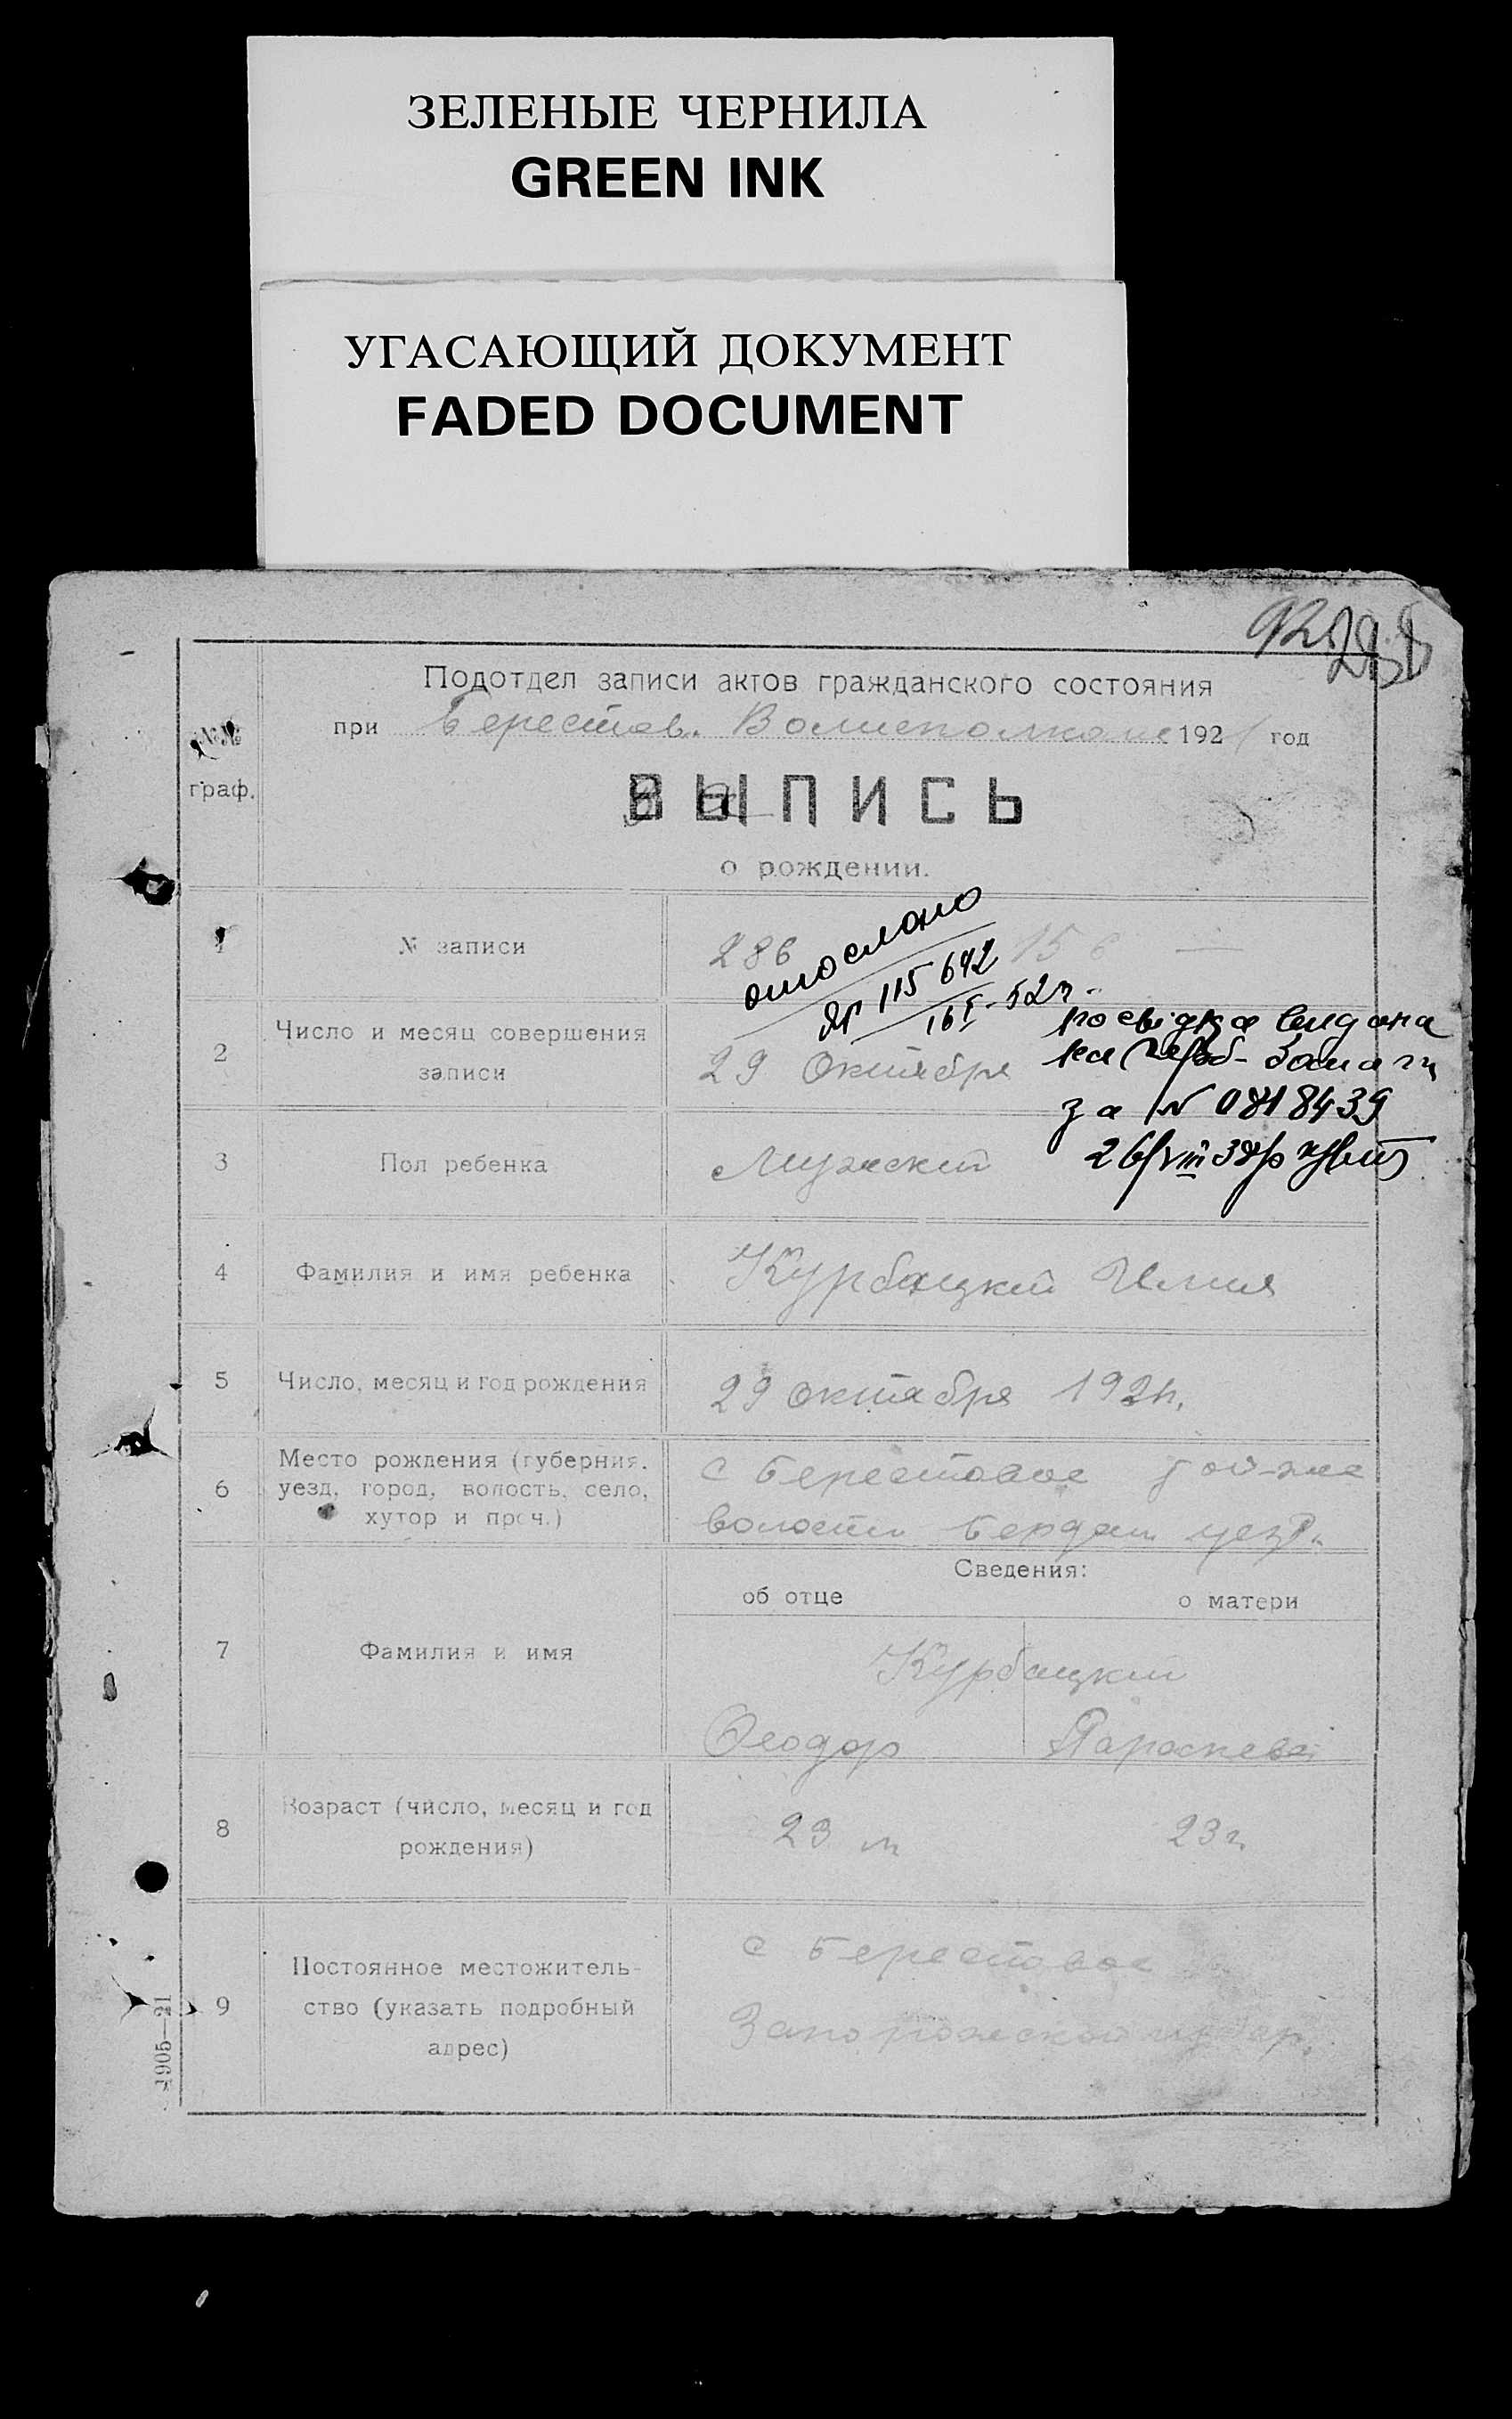 ЗЕЛЕНЫЕ ЧЕРНИЛА
GREEN INK
УГАСАЮЩИЙ ДОКУМЕНТ
FADED DOCUMENT
Подотдел записи актов гражданского состояния
при Берестов. Волисполкоме 1921 год
№№
граф.
ВЫПИСЬ
о рождении.
1 № записи 286
отослано
№ 115642
16/I-52г.
2 Число и месяц совершения
записи 29 Октября
посвідка видана
за № 0818439
3 Пол ребенка Мужской
4 Фамилия и имя ребенка Курбацкий Илия
5 Число, месяц и год рождения 29 октября 1921г.
6 Место рождения (губерния,
уезд, город, волость, село,
хутор и проч.)
с Берестовое той-же
волости Бердян уезд.
Сведения:
об отце о матери
7 Фамилия и имя
Курбацкий
Феодор Параскева
8 Возраст (число, месяц и год
рождения)
23 л 23 г.
9 Постоянное местожитель-
ство (указать подробный
адрес)
с Берестовое
Запорожской губер.
1905—21